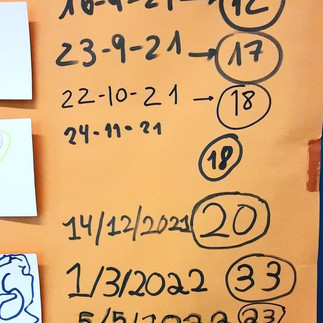 23-9-21 → 17
22-10-21 → 18
24-11-21
18
14/12/2021 20
1/3/2022 33
5/5/2022 23